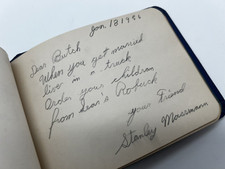 Jan. 13 1936
Dear Butch
When you get married
live in a truck
Order your children
from Sear's Robuck
your Friend
Stanley